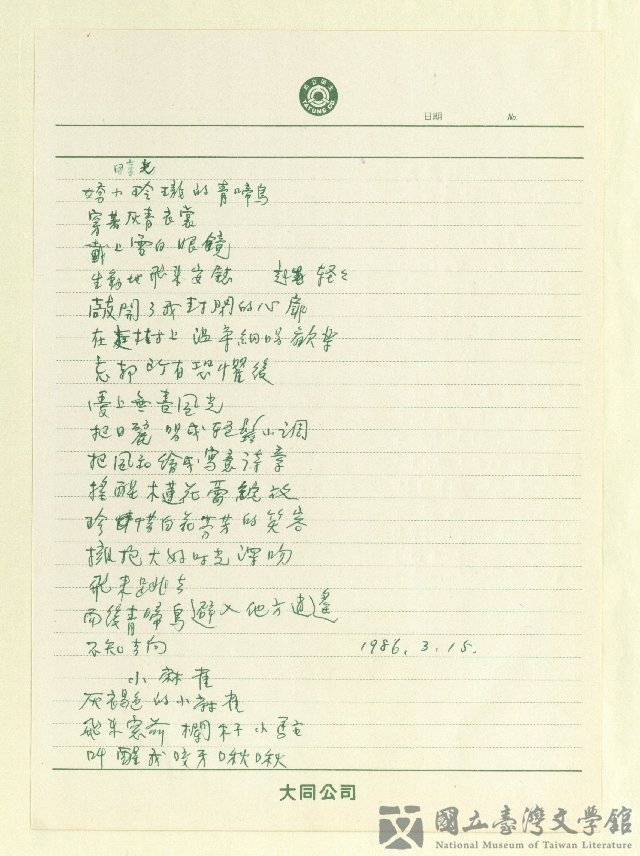 大同公司
TATUNG CO.
日期 No.
時光
嬌小玲瓏的青啼鳥
穿著灰青衣裳
戴上雪白眼鏡
生動地飛來安 輕輕
敲開了我封閉的心扉
在 村上溫柔細唱歡樂
忘却所有恐懼後
愛上無盡風光
把日麗唱成輕鬆小調
把風和繪成寫意詩章
搖醒木蓮花蕾綻放
珍惜百花芬芳的笑容
擁抱大好時光深吻
飛來跳去
而後青啼鳥避入他方逍遙
不知方向 1986. 3. 15.
小麻雀
灰褐色的小麻雀
飛來窗前欄杆小憩
叫醒我 啾啾
大同公司
國立臺灣文學館
National Museum of Taiwan Literature